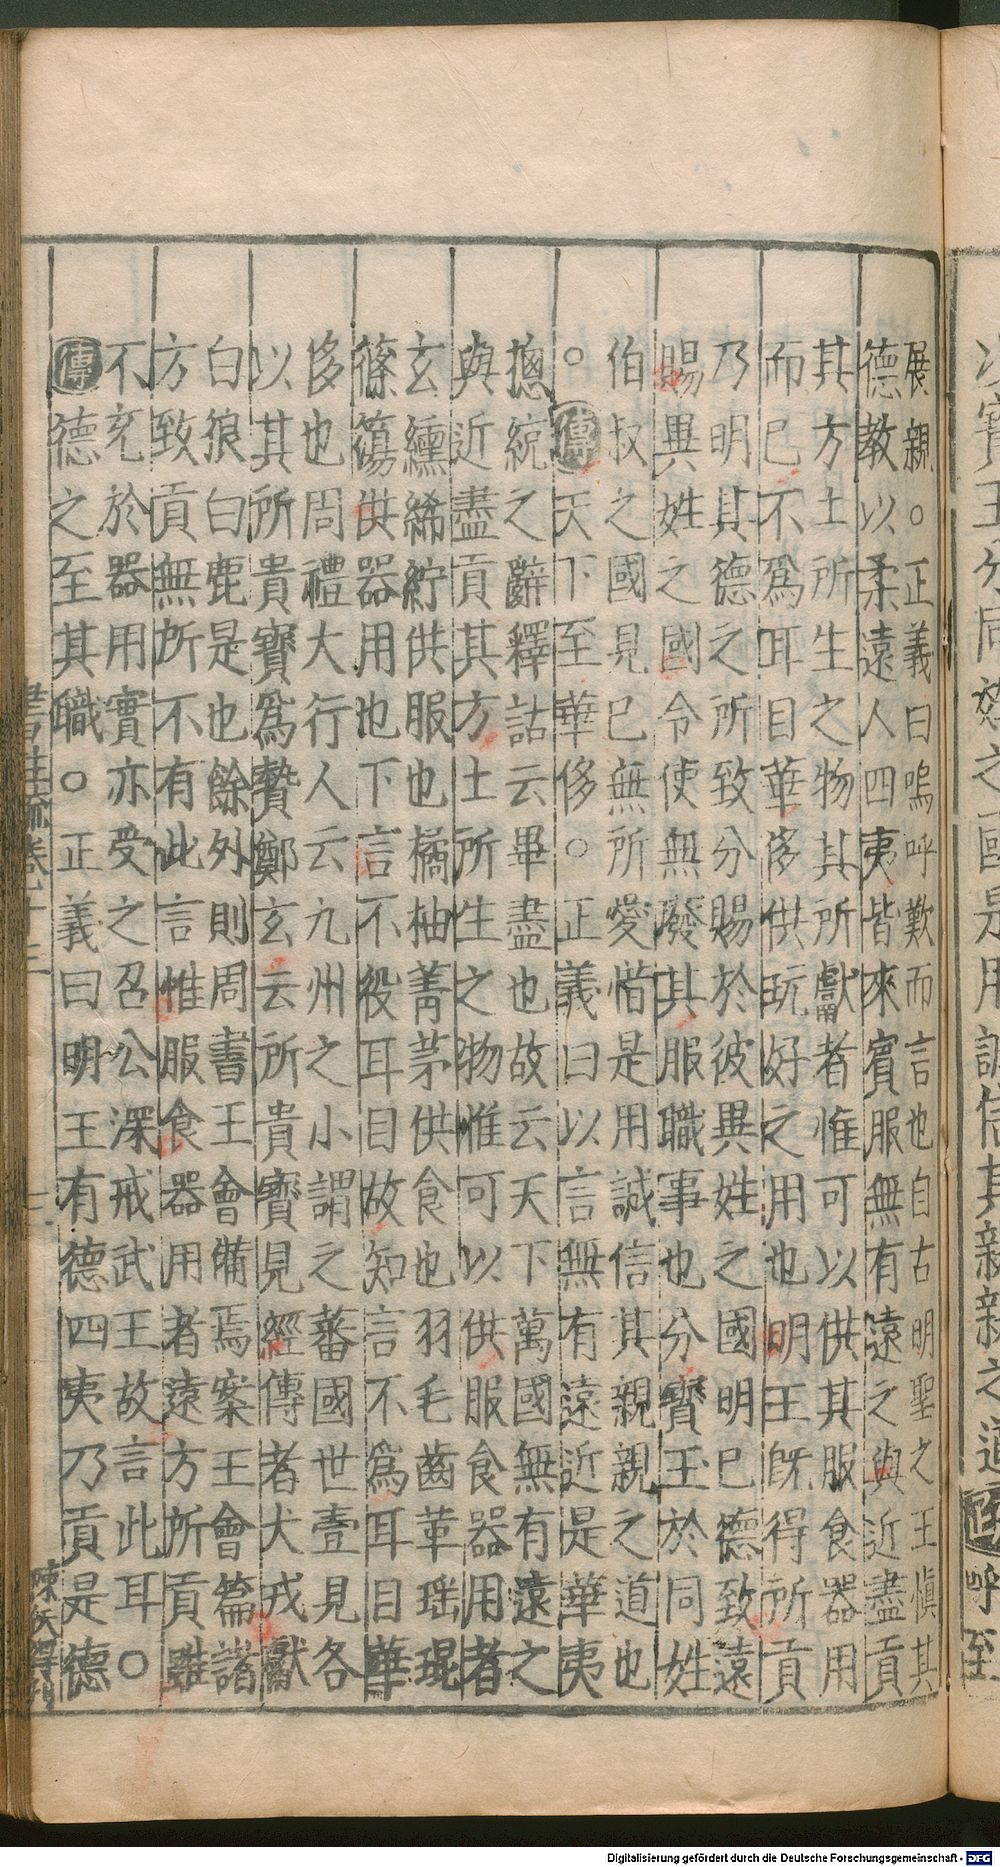 展親○正義曰嗚呼歎而言也自古明聖之王慎其
德教以柔遠人四夷皆來賓服無有遠之與近盡貢
其方土所生之物其所獻者惟可以供其服食器用
而已不爲耳目華侈供玩好之用也明王旣得所貢
乃明其德之所致分賜於彼異姓之國明已德致遠
賜異姓之國令使無廢其服職事也分寶玉於同姓
伯叔之國見已無所愛惜是用誠信其親親之道也
○傳天下至華侈○正義曰以言無有遠近是華夷
揔綂之辭釋詁云畢盡也故云天下萬國無有遠之
與近盡貢其方土所生之物惟可以供服食器用者
玄纁絺紵供服也橘柚菁茅供食也羽毛齒革瑶琨
篠簜供器用也下言不役耳目故知言不爲耳目華
侈也周禮大行人云九州之小謂之蕃國世壹見各
以其所貴寶爲贄鄭玄云所貴寶見經傳者犬戎獻
白狼白鹿是也餘外則周書王會備焉案王會篇諸
方致貢無所不有此言惟服食器用者遠方所貢雖
不充於器用實亦受之召公深戒武王故言此耳○
傳德之至其職○正義曰明王有德四夷乃貢是德
書注疏卷十三
以寶玉分同姓之國是用誠信其親親之道
呼至